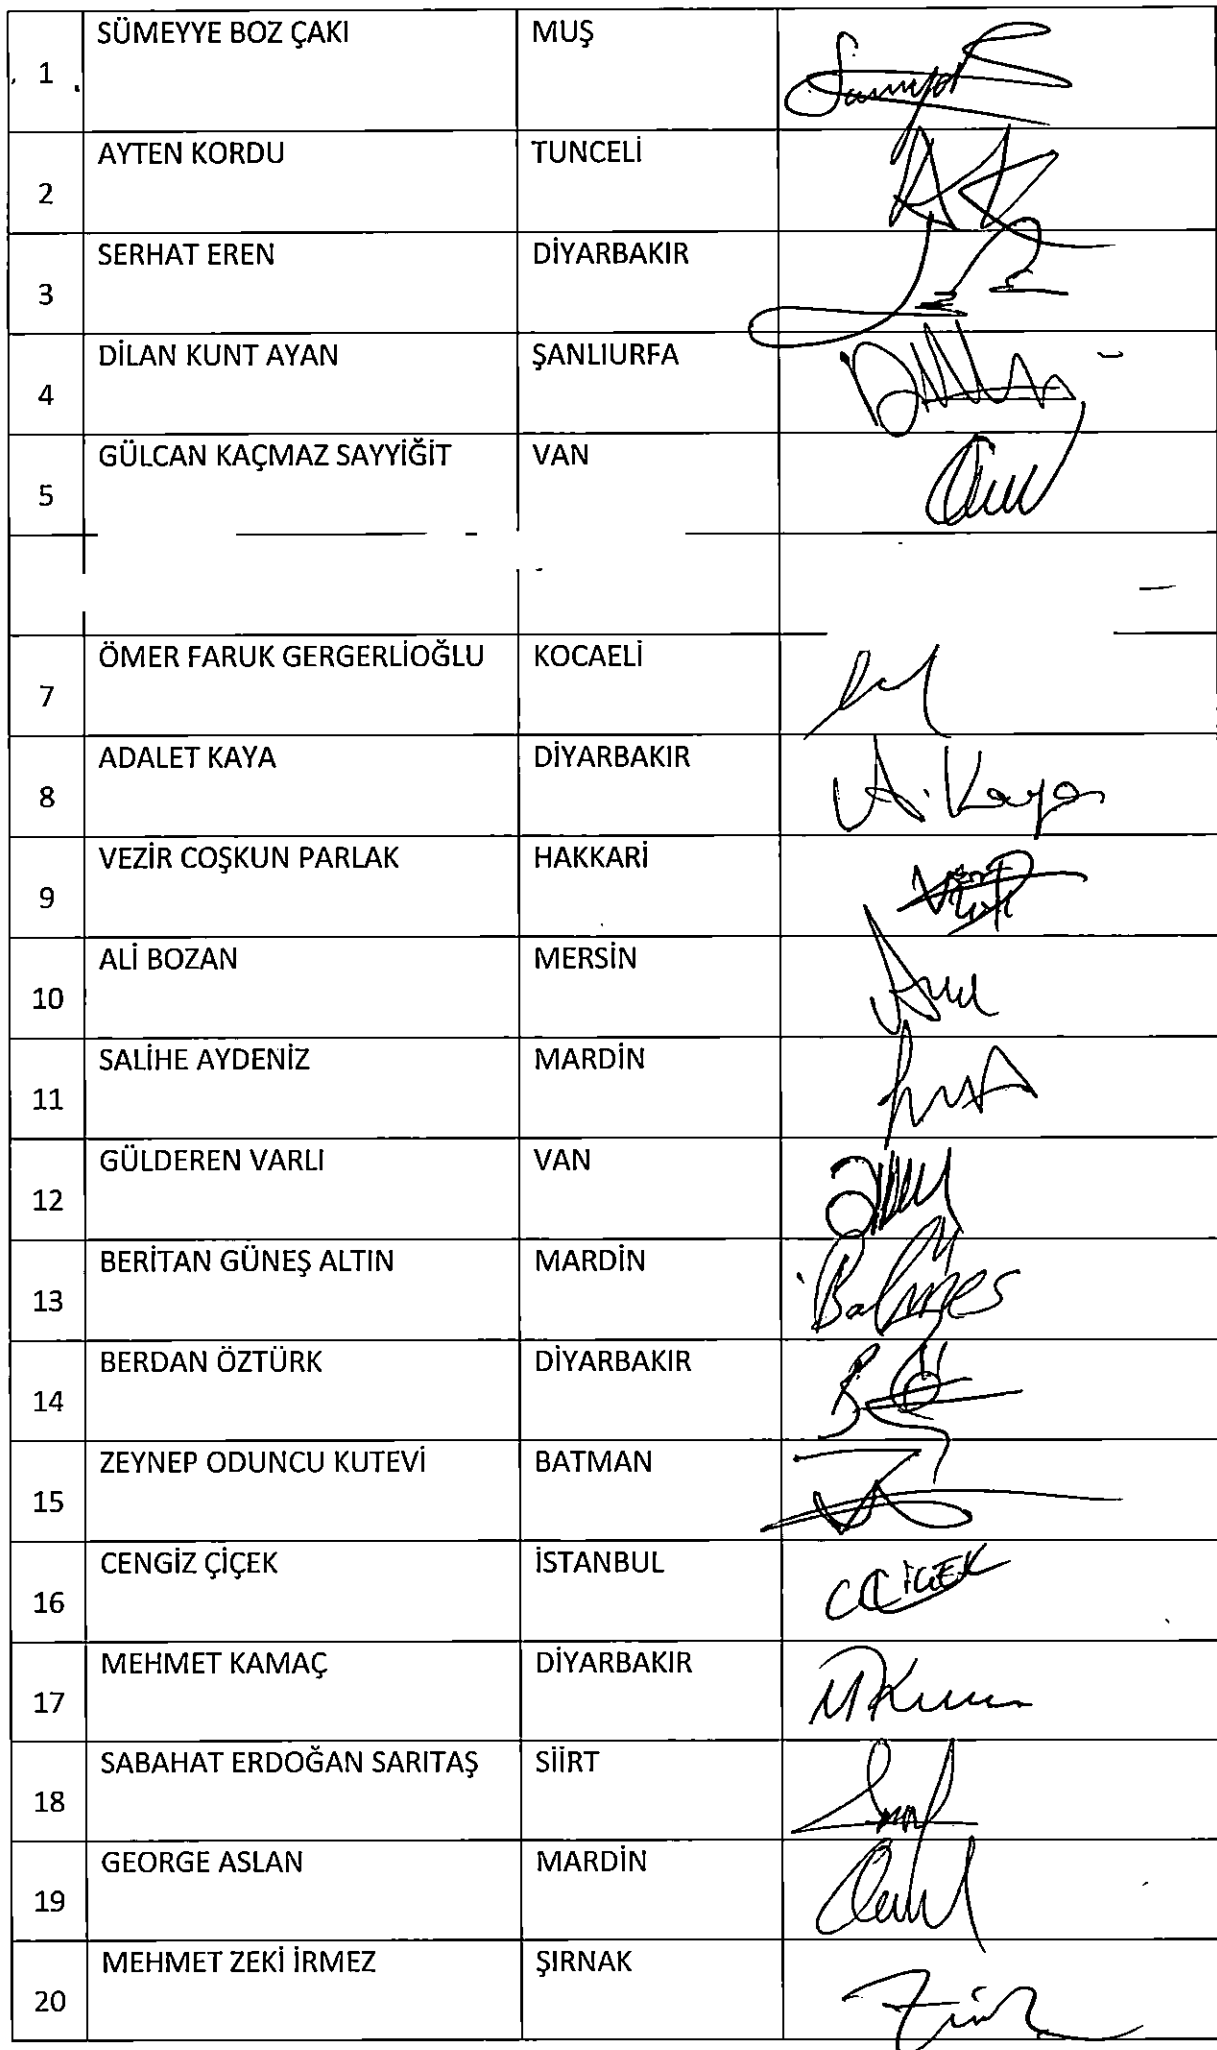 1 SÜMEYYE BOZ ÇAKI MUŞ
2 AYTEN KORDU TUNCELİ
3 SERHAT EREN DİYARBAKIR
4 DİLAN KUNT AYAN ŞANLIURFA
5 GÜLCAN KAÇMAZ SAYYİĞİT VAN
7 ÖMER FARUK GERGERLİOĞLU KOCAELİ
8 ADALET KAYA DİYARBAKIR A. Kaya
9 VEZİR COŞKUN PARLAK HAKKARİ
10 ALİ BOZAN MERSİN
11 SALİHE AYDENİZ MARDİN
12 GÜLDEREN VARLI VAN
13 BERİTAN GÜNEŞ ALTIN MARDİN
14 BERDAN ÖZTÜRK DİYARBAKIR
15 ZEYNEP ODUNCU KUTEVİ BATMAN
16 CENGİZ ÇİÇEK İSTANBUL C ÇİÇEK
17 MEHMET KAMAÇ DİYARBAKIR
18 SABAHAT ERDOĞAN SARITAŞ SİİRT
19 GEORGE ASLAN MARDİN
20 MEHMET ZEKİ İRMEZ ŞIRNAK